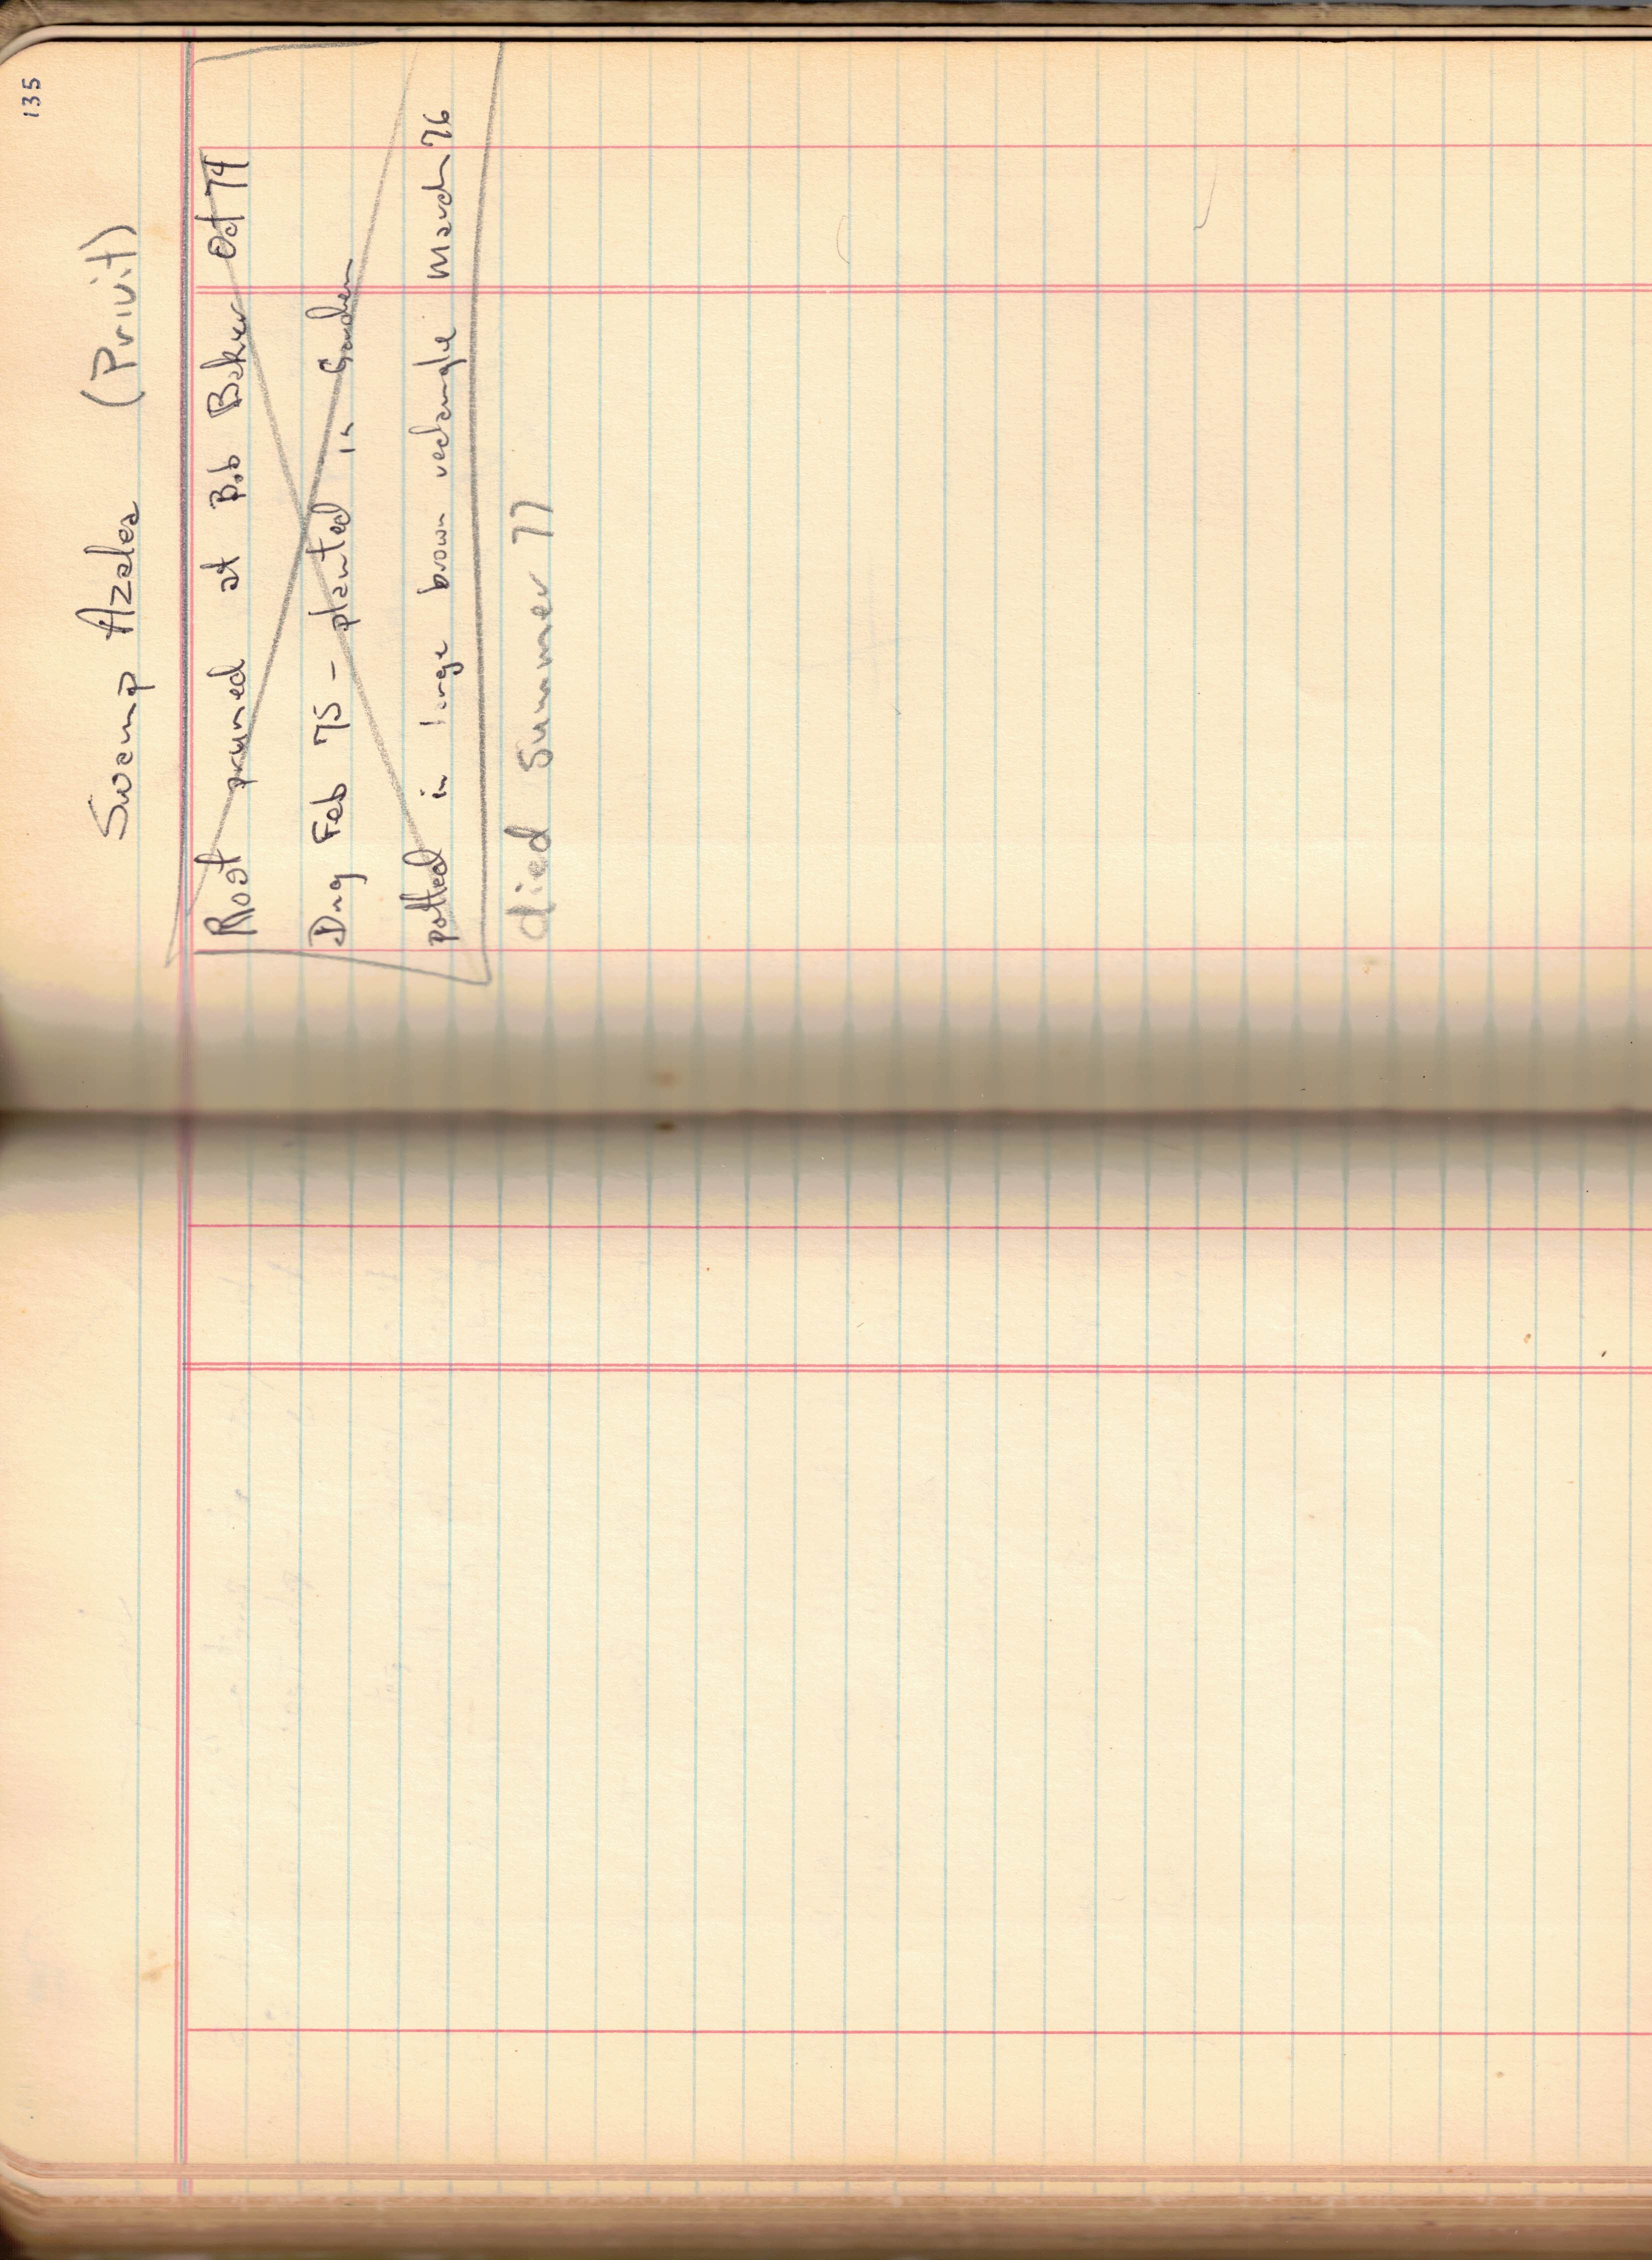 135
Swamp Azalea (Privit)
Root pruned at Bob Baker Oct 74
Dug Feb 75 - planted in Garden
potted in large brown rectangle March 76
died Summer 77